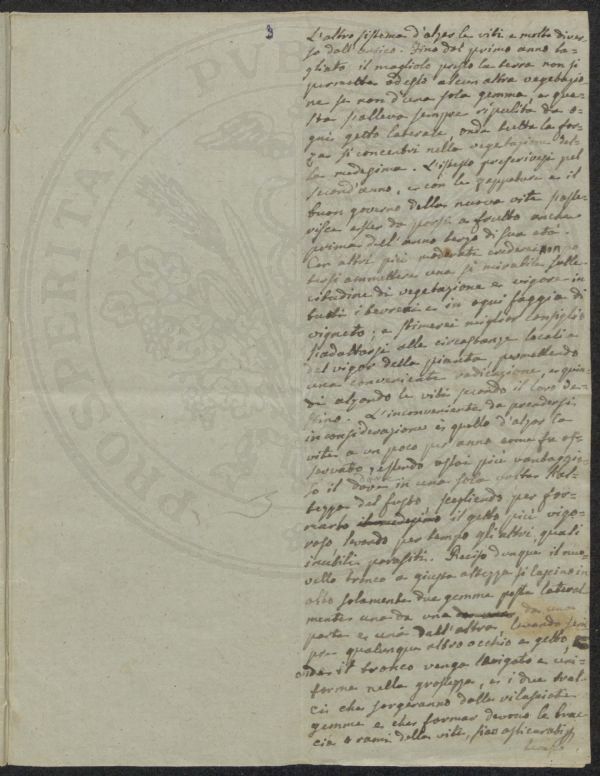 3
L'altro sistema d'alzar le viti è molto diver=
so dall'antico. Fino dal primo anno ta=
gliato il magliolo presso la terra non si
permette adesso alcun altra vegetazio
ne se non d'una sola gemma, e que=
sta s'alleva sempre ripulita da o=
gni getto laterale, onde tutta la for=
za si concentri nella vegetazione del=
la medesima. L'istesso pel
second'anno, e con le zappature e il
buon governo della nuova vite s'asse=
risce esser da porsi a frutto anche
prima dell'anno terzo di sua età.
Con altri più moderati crederei non po
tersi ammettere una sì mirabile solle=
citudine di vegetazione e vigore in
tutti i terreni e in ogni foggia di
vigneto; e stimerei miglior consiglio
s'adattarsi alle circostanze locali e
del vigor della pianta, permettendo
una conveniente radicazione, e quin=
di alzando le viti secondo il loro de=
stino. L'inconveniente da prendersi
in considerazione è quello d'alzar la
vite a un poco per anno come fu os=
servato, essendo assai più vantaggio
so il dare in una sola volta l'al=
tezza del fusto scegliendo per for=
marlo il medesimo il getto più vigo=
roso levando per tempo gli altri, quali
inutili parasiti. Reciso dunque il no=
vello tronco a giusta altezza si lascino in
alto solamente due gemme poste lateral
mente una da una da una
parte e una dall'altra, levando sem
pre qualunque altro occhio o getto,
onde il tronco venga levigato e uni=
forme nella grossezza, e i due tral=
ci che sorgeranno dalle rilasciate
gemme e che formar devono le brac=
cia o rami della vite, sian
PVB
RITRATI
PHOSI